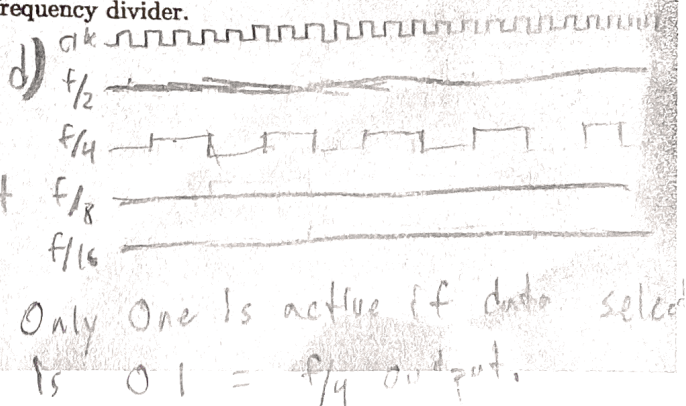 requency divider.
d) clk
f/2
f/4
f/8
f/16
Only One is active if data selec
is 01 = f/4 output.